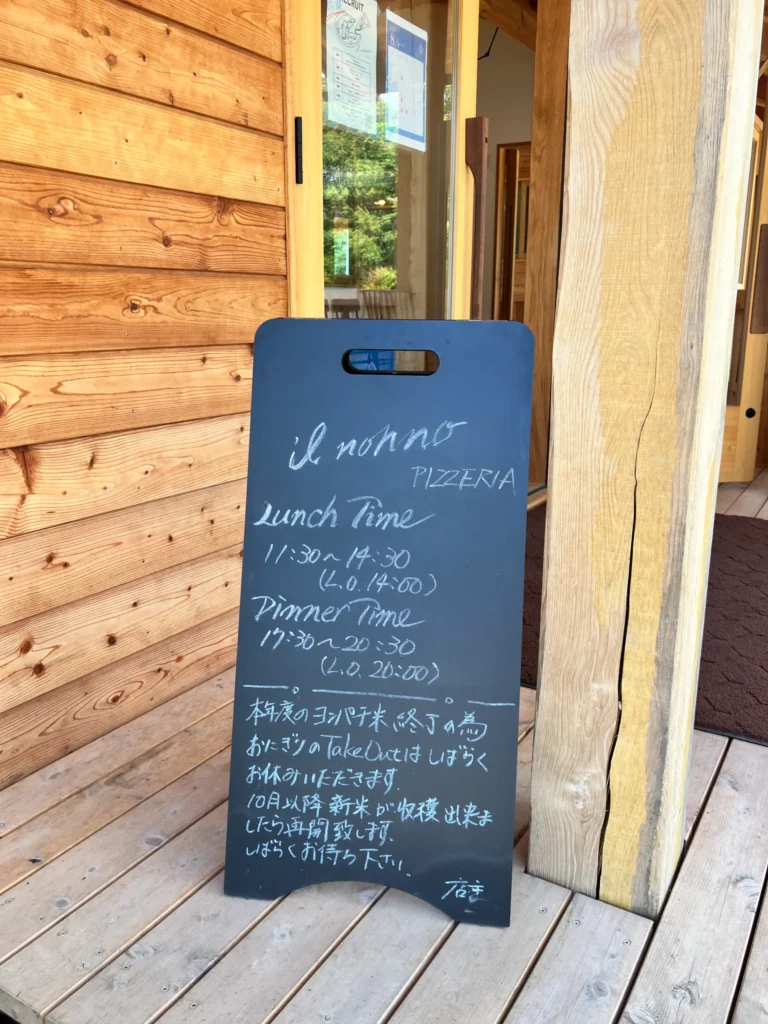 RECRUIT
il nonno
PIZZERIA
Lunch Time
11:30〜14:30
(L.O.14:00)
Dinner Time
17:30〜20:30
(L.O.20:00)
本年度のヨンパチ米終了の為
おにぎりのTakeOutはしばらく
お休みいただきます.
10月以降新米が収穫出来ま
したら再開致します.
しばらくお待ち下さい.
店主